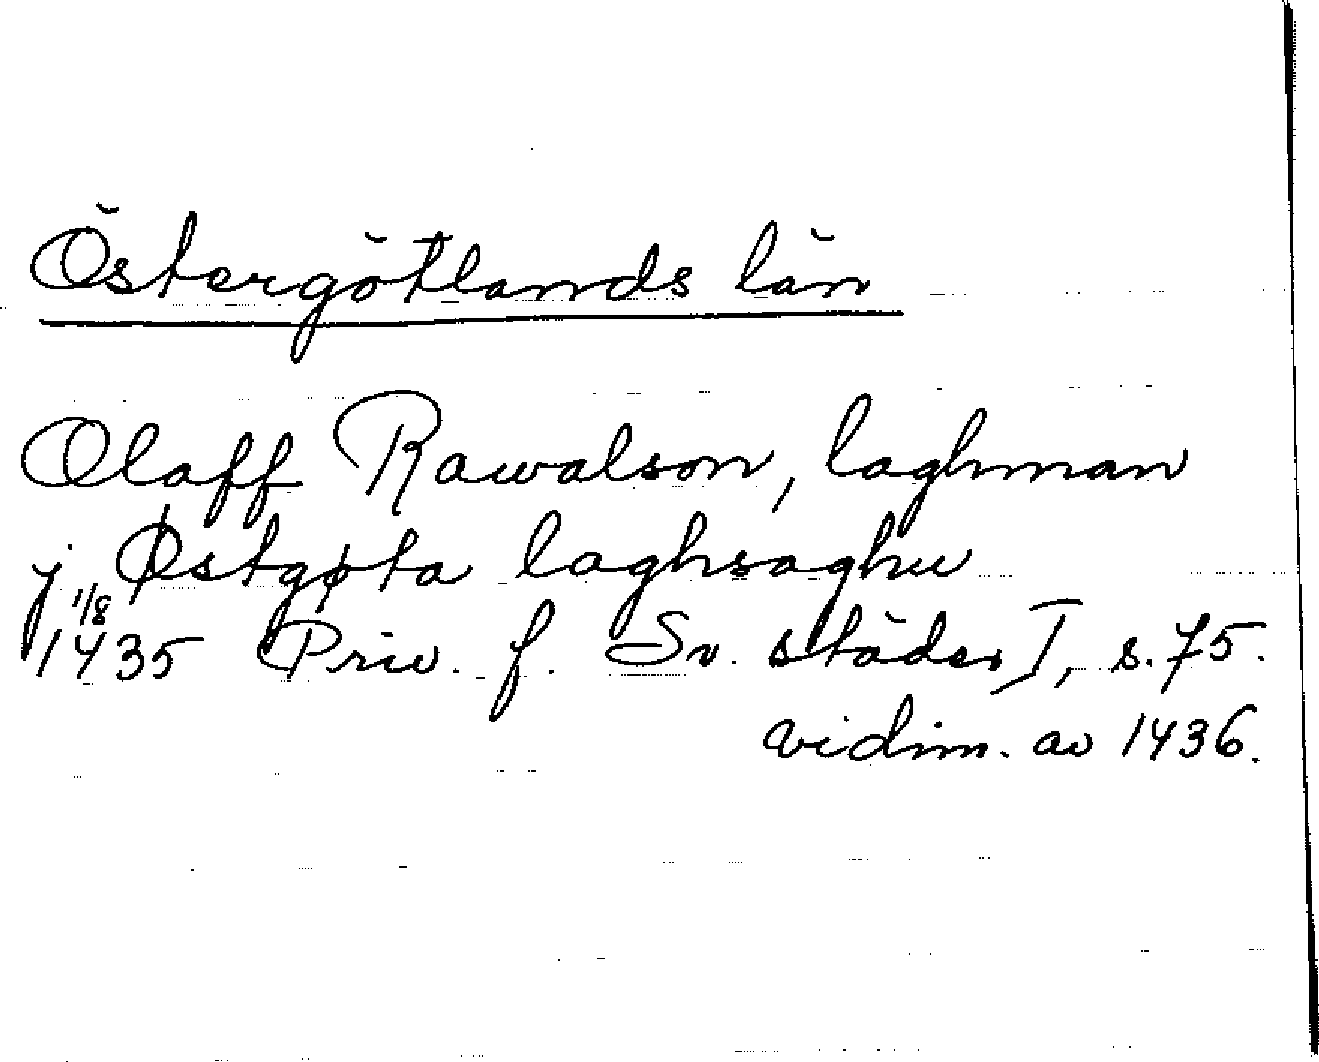 Östergötlands län
Olaff Rawalson, laghman
j Østgøta laghsaghu
1/8
1435 Priv. f. Sv. städer I, s. 75.
vidim. av 1436.